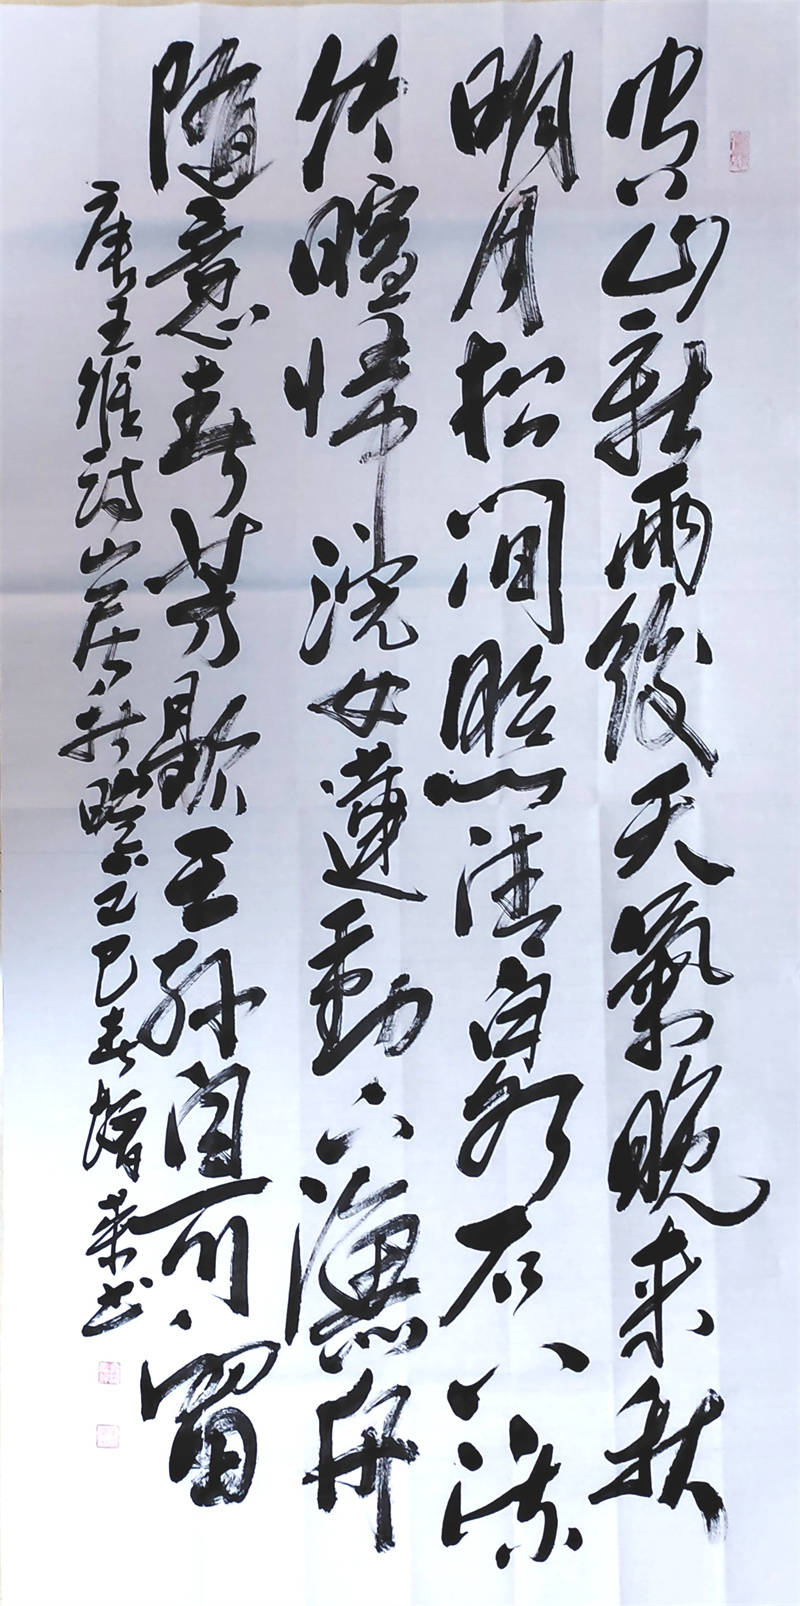 空山新雨後天氣晚来秋
明月松间照清泉石上流
竹喧帰浣女蓮動下漁舟
随意春芳歇王孫自可留
唐王維诗山居秋暝乙巳春增荣书